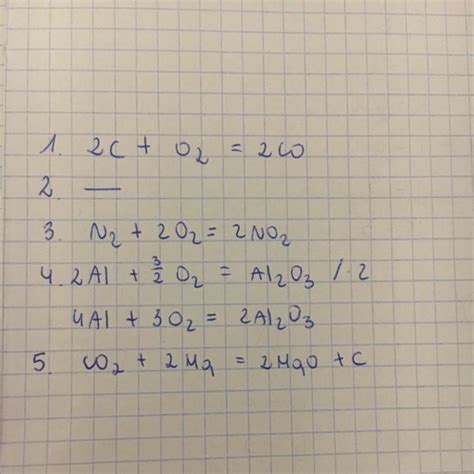 1. 2C + O₂ = 2CO
2. —
3. N₂ + 2O₂ = 2NO₂
4. 2Al + 3/2 O₂ = Al₂O₃ /·2
4Al + 3O₂ = 2Al₂O₃
5. CO₂ + 2Mg = 2MgO + C